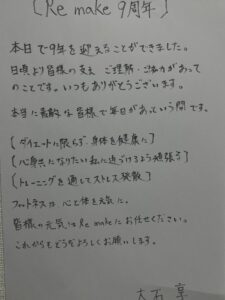 [Re make 9周年]
本日で9年を迎えることができました。
日頃より皆様の支え ご理解・ご協力があって
のことです。いつもありがとうございます。
本当に素敵な皆様で毎日があっという間です。
[ダイエットに限らず、身体を健康に]
[心身共になりたい私に近づけるよう頑張る]
[トレーニングを通してストレス発散]
フィットネスは心と体を元気に。
皆様の元気はRe makeにお任せください。
これからもどうぞよろしくお願いします。
大石 享